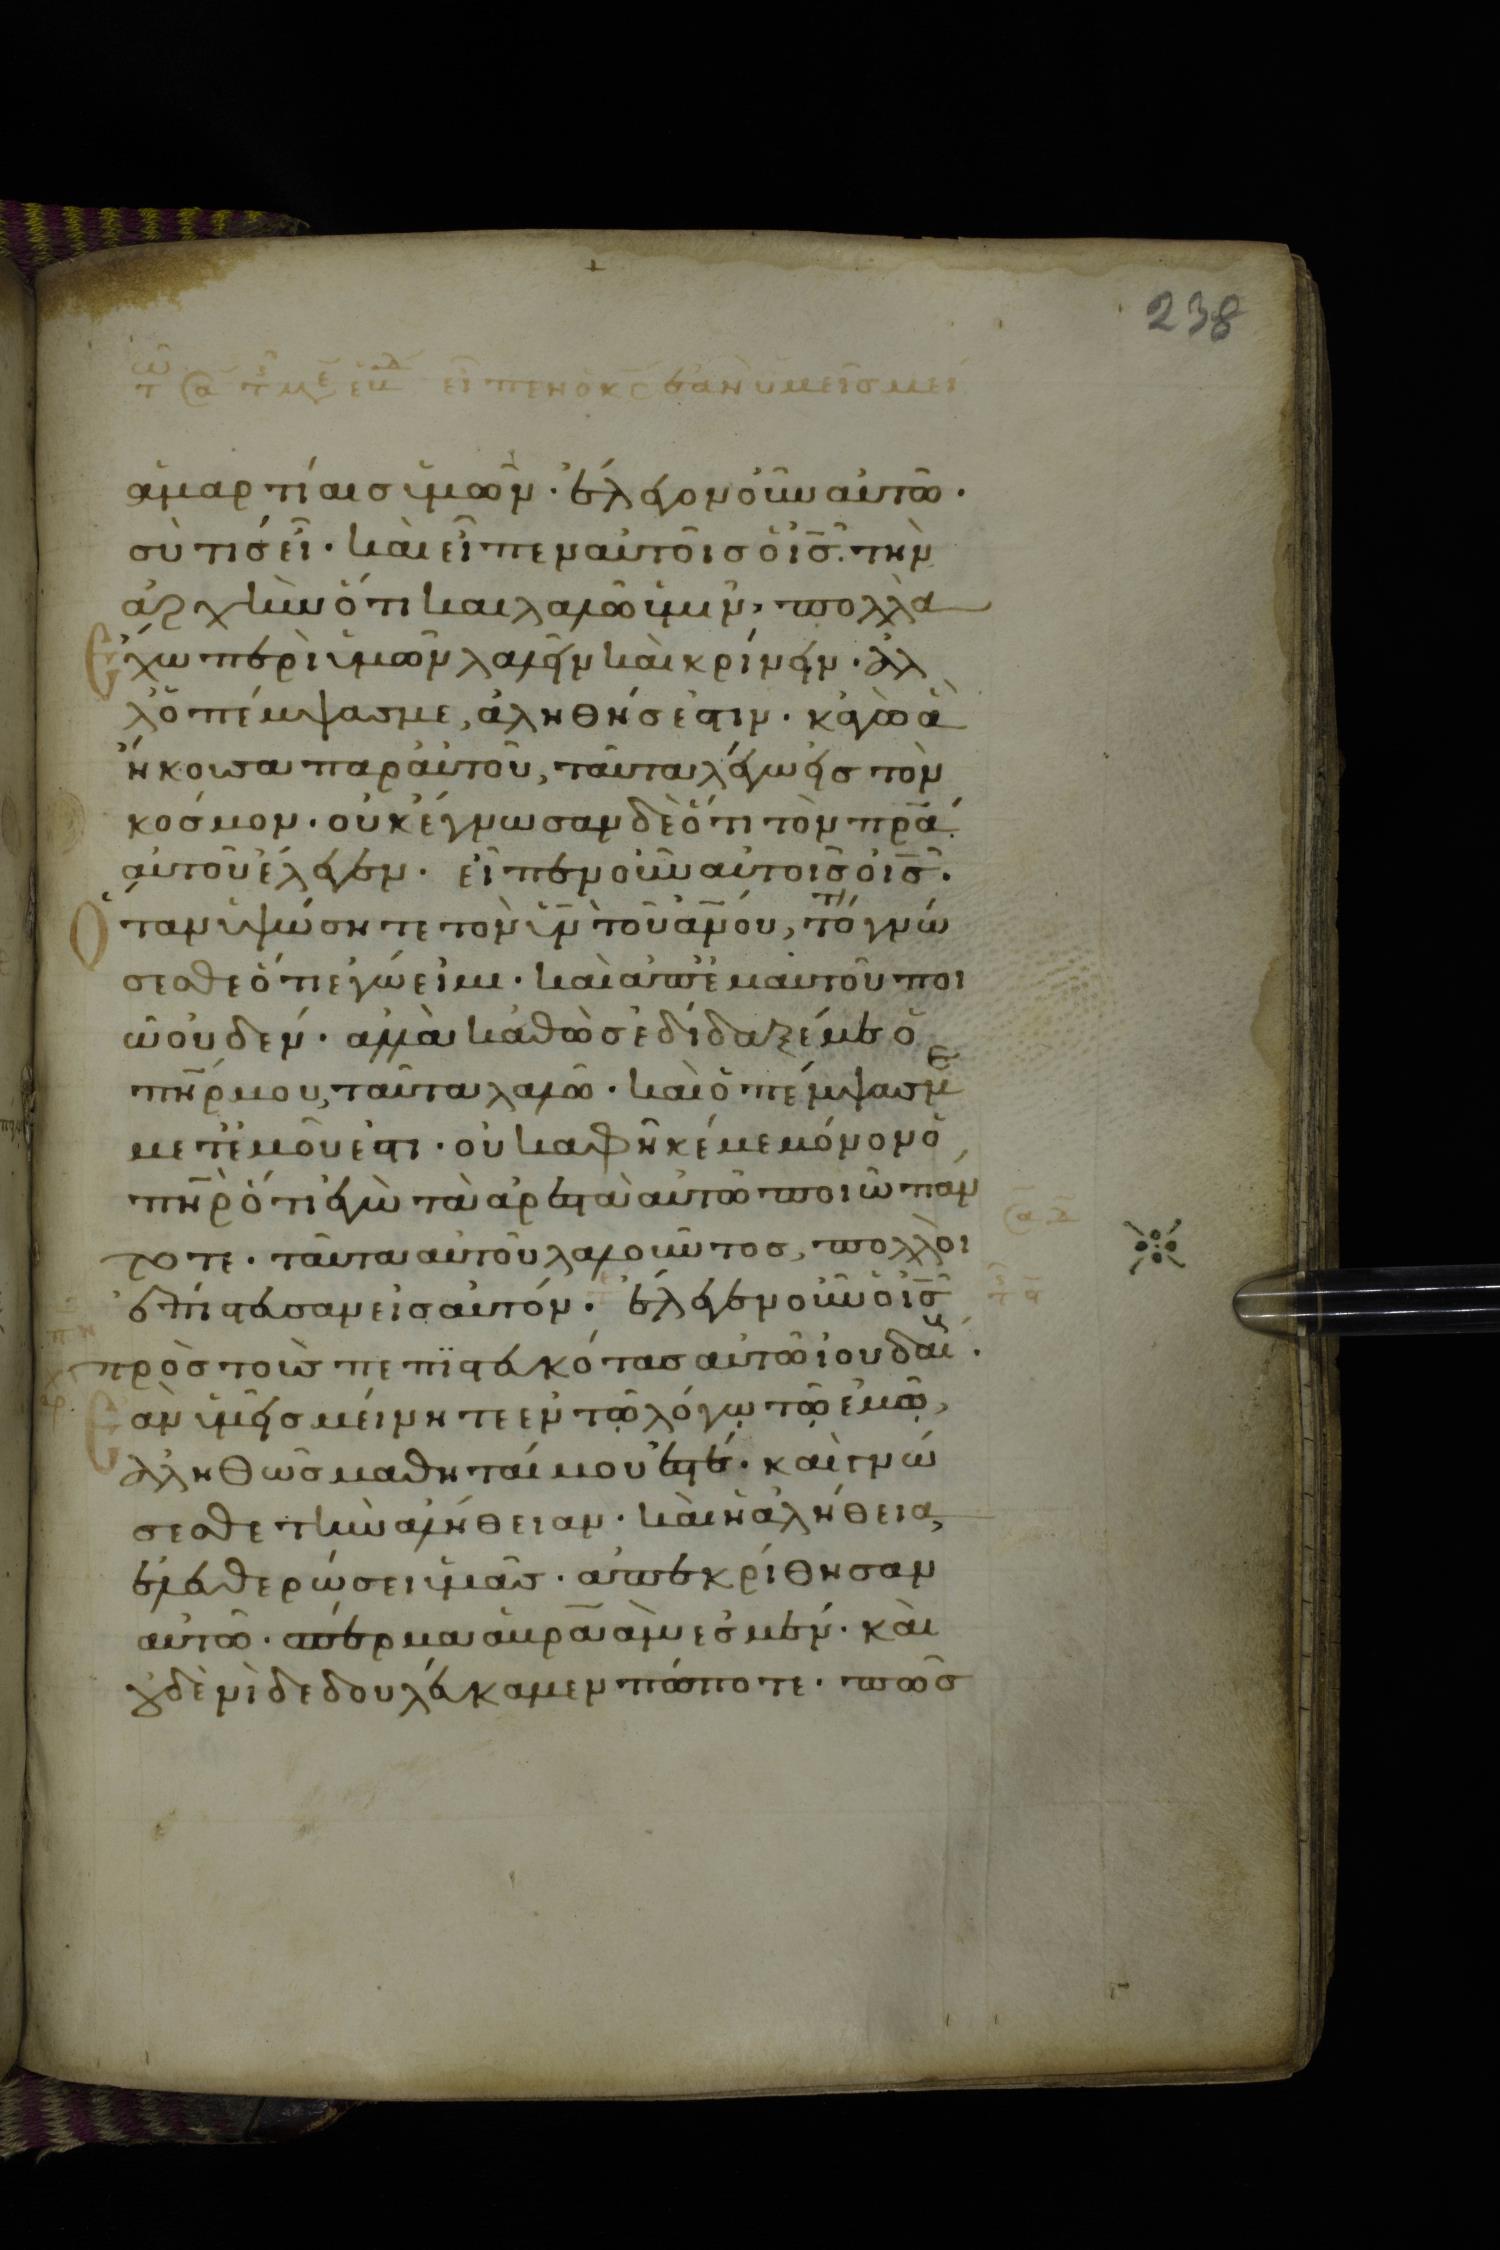 238
εἶπεν ὁ κ̅ς̅ ἐὰν ὑμεῖς μεί
ἁμαρτίαις ὑμῶν· ἔλεγον οὖν αὐτῶ·
σὺ τίς εἶ· καὶ εἶπεν αὐτοῖς ὁ ι̅ς̅· τὴν
ἀρχὴν ὅτι καὶ λαλῶ ὑμῖν, πολλὰ
ἔχω περὶ ὑμῶν λαλεῖν καὶ κρίνειν· ἀλ
λ ὁ πέμψας με, ἀληθής ἐστιν· κἀγὼ ἃ
ἤκουσα παρ αὐτοῦ, ταῦτα λέγω εἰς τὸν
κόσμον· οὐκ ἔγνωσαν δὲ ὅτι τὸν π̅ρ̅α̅
αὐτοῦ ἔλεγεν· εἶπεν οὖν αὐτοῖς ὁ ι̅ς̅·
Ὅταν ὑψώσητε τὸν υ̅ν̅ τοῦ α̅ν̅ου, τότε γνώ
σεσθε ὅτι ἐγώ εἰμι· καὶ ἀπ ἐμαυτοῦ ποι
ῶ οὐδέν· ἀλλὰ καθὼς ἐδίδαξέ με ὁ
π̅η̅ρ̅ μου, ταῦτα λαλῶ· καὶ ὁ πέμψας με
μετ ἐμοῦ ἐστι· οὐκ ἀφῆκέ με μόνον ὁ
π̅η̅ρ̅ ὅτι ἐγὼ τὰ ἀρεστὰ αὐτῶ ποιῶ πάν
τοτε· ταῦτα αὐτοῦ λαλοῦντος, πολλοὶ
ἐπίστευσαν εἰς αὐτόν· ἔλεγεν οὖν ὁ ι̅ς̅
πρὸς τοὺς πεπιστευκότας αὐτῶ ἰουδαί·
Ἐὰν ὑμεῖς μείνητε ἐν τῷ λόγῳ τῷ ἐμῷ,
ἀληθῶς μαθηταί μου ἐστέ· καὶ γνώ
σεσθε τὴν ἀλήθειαν· καὶ ἡ ἀλήθεια
ἐλευθερώσει ὑμᾶς· ἀπεκρίθησαν
αὐτῶ· σπέρμα ἀβραάμ ἐσμεν· καὶ
οὐδενὶ δεδουλεύκαμεν πώποτε· πῶς